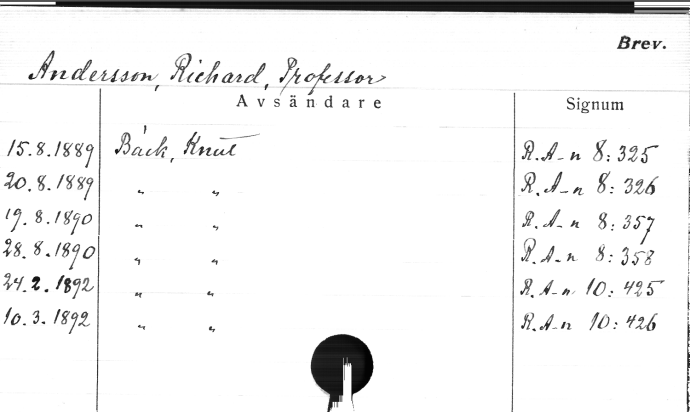 Brev.
Andersson, Richard, Professor
Avsändare Signum
15.8.1889 Bäck, Knut R.A-n 8:325
20.8.1889 " " R.A-n 8:326
19.8.1890 " " R.A-n 8:357
28.8.1890 " " R.A-n 8:358
24.2.1892 " " R.A-n 10:425
10.3.1892 " " R.A-n 10:426